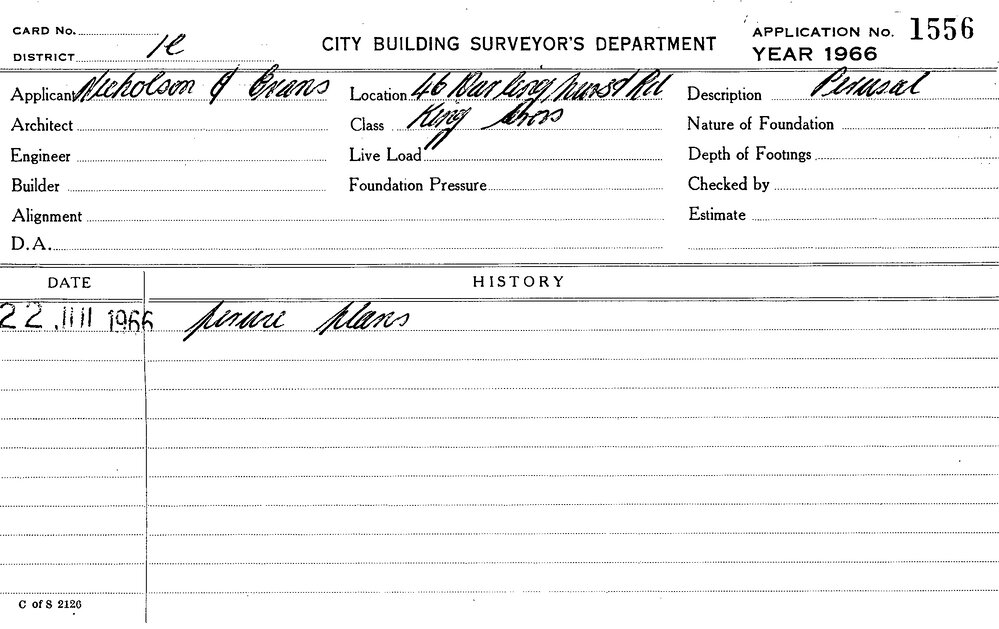 CARD No.
DISTRICT
CITY BUILDING SURVEYOR'S DEPARTMENT
APPLICATION No. 1556
YEAR 1966
Applicant Nicholson & Evans
Location 46 Darlinghurst Rd
Description Perusal
Architect
Class King Cross
Nature of Foundation
Engineer
Live Load
Depth of Footings
Builder
Foundation Pressure
Checked by
Alignment
Estimate
D.A.
DATE
HISTORY
22 1966 peruse plans
C of S 2126